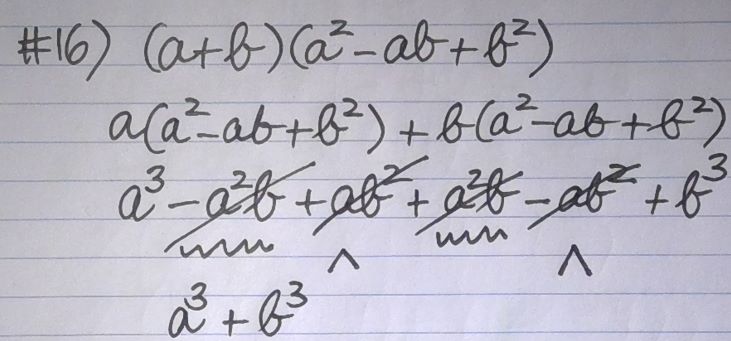 #16) (a+b)(a²-ab+b²)
a(a²-ab+b²)+b(a²-ab+b²)
a³-a²b+ab²+a²b-ab²+b³
a³+b³